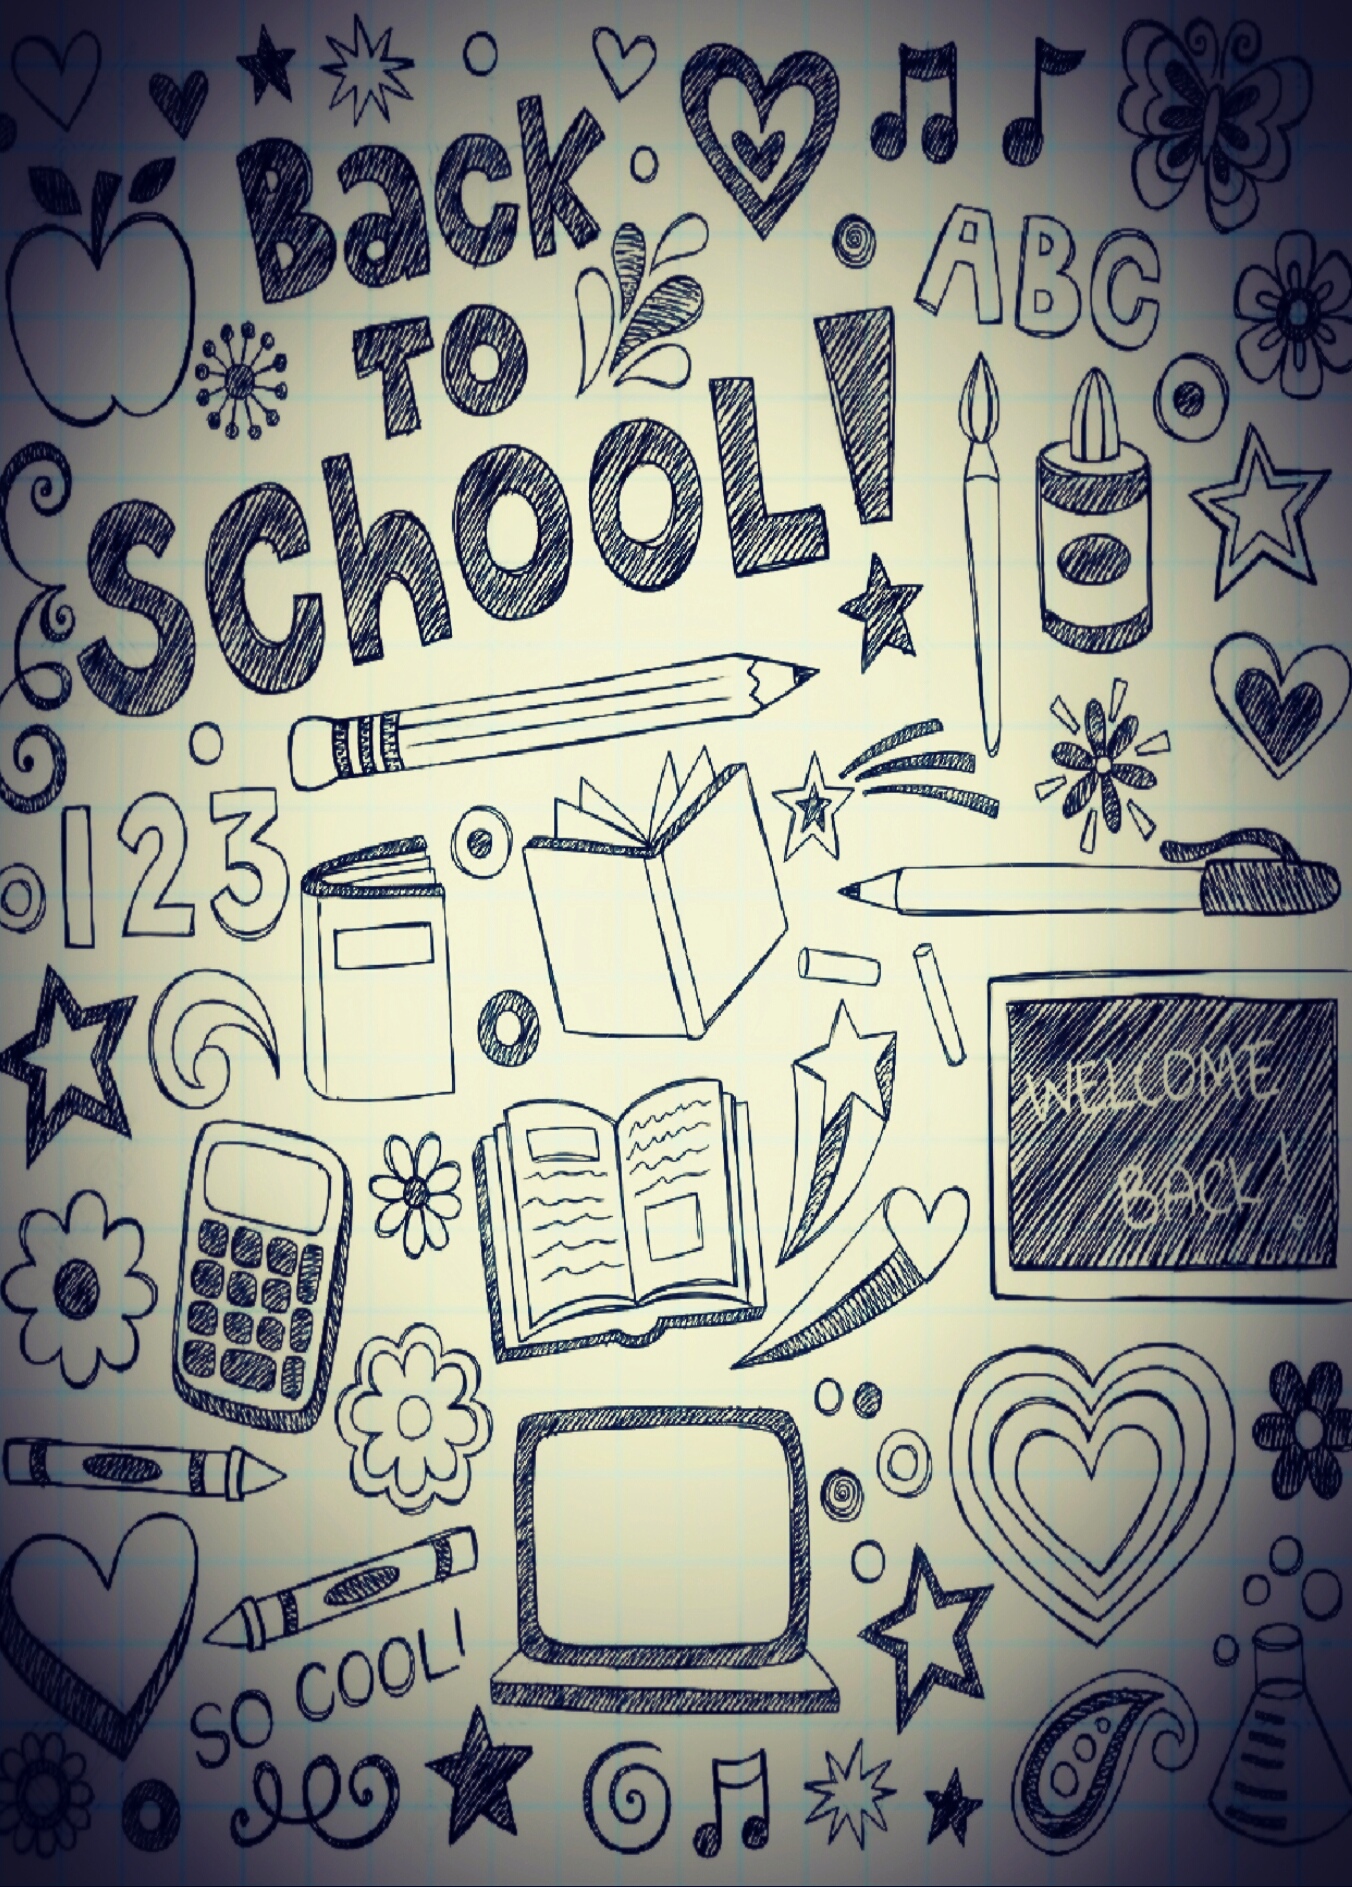 Back
To
School!
ABC
123
WELCOME
BACK!
SO COOL!